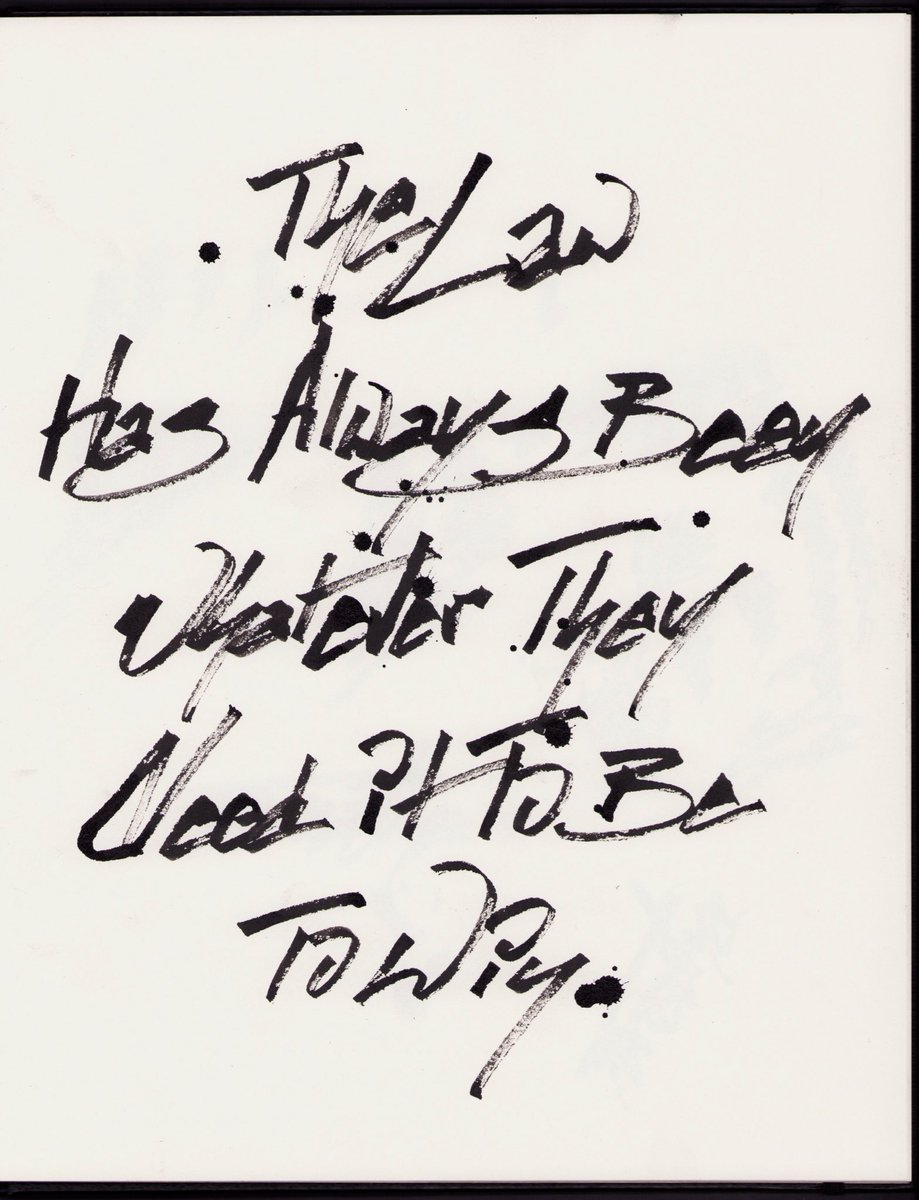 The Law
Has Always Been
Whatever They
Need It To Be
To Win.